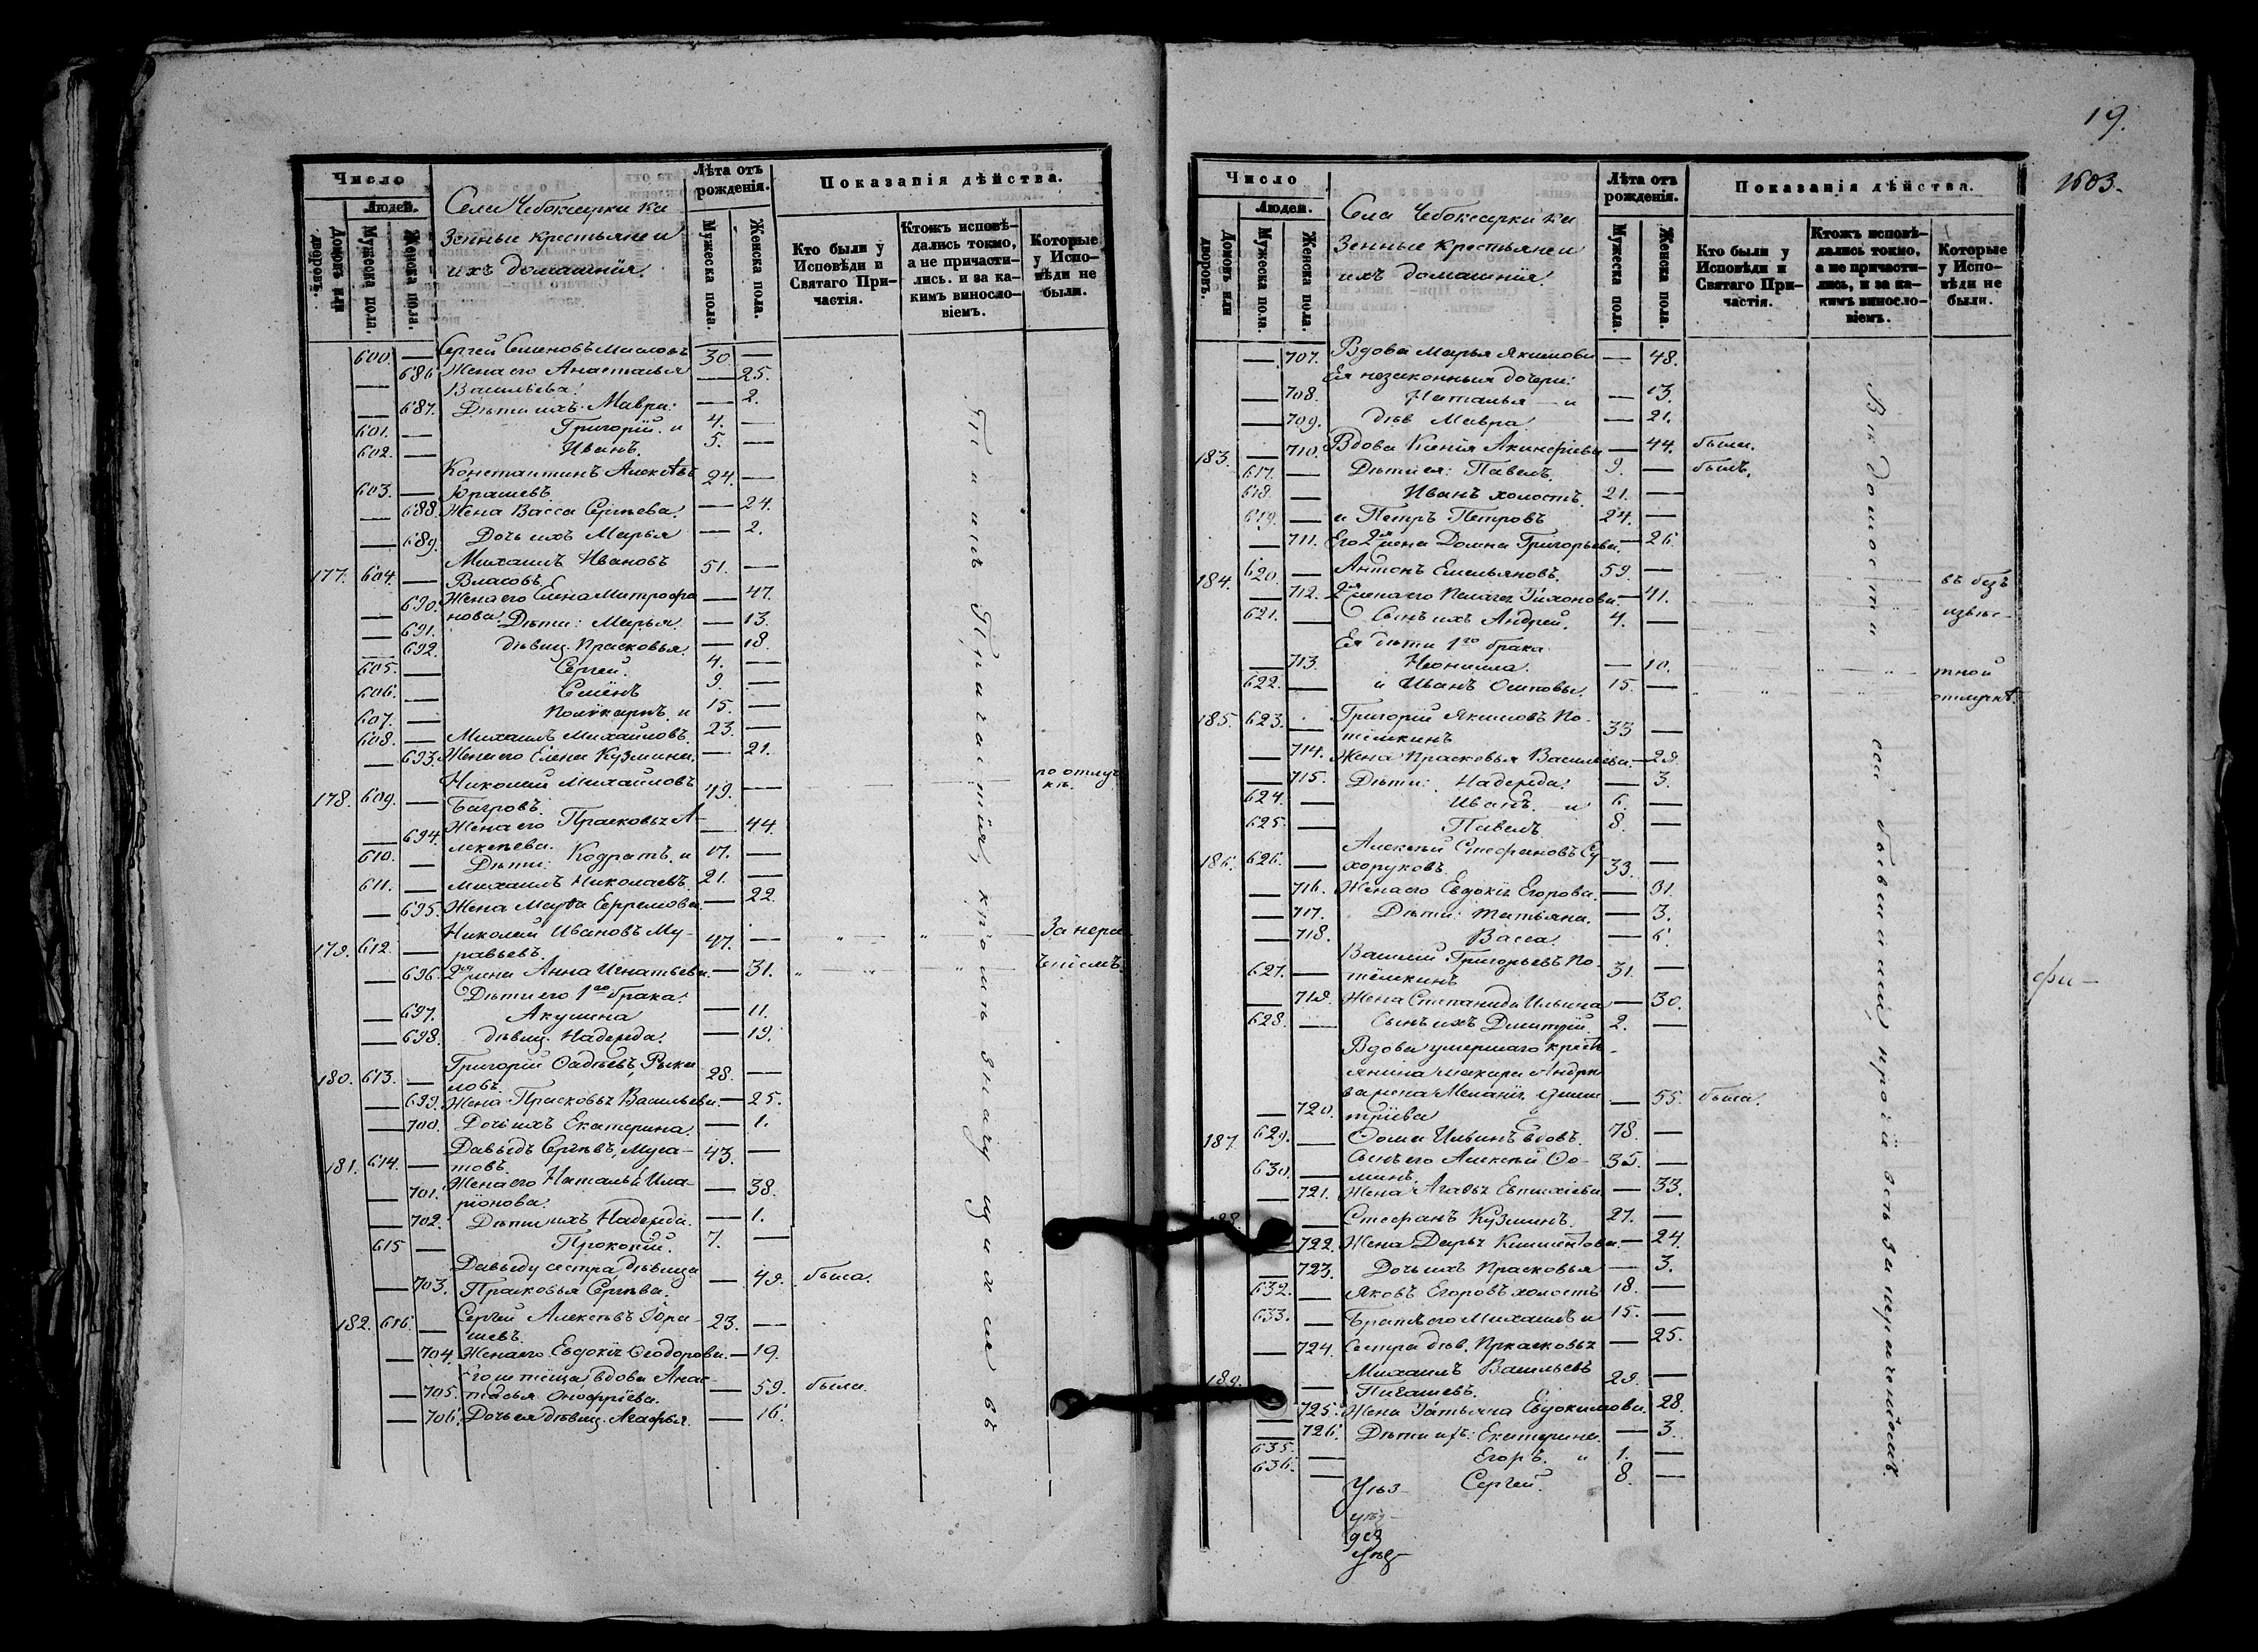 Число
Людей.
Домовъ или дворовъ.
Мужеска пола.
Женска пола.
Села Чебоксарки ка
зенные крестьяне и
ихъ домашнія.
Лѣта отъ рожденія.
Мужеска пола.
Женска пола.
Показанія дѣйства.
Кто были у Исповѣди и Святаго Причастія.
Ктожъ исповѣдались токмо, а не причастились. и за какимъ винословіемъ.
Которые у Исповѣди не были.
600. — Сергей Семеновъ Масловъ 30 —
— 686 Жена его Анастасья — 25.
Васильева.
— 687. Дѣти ихъ: Мавра: — 2.
601. — Григорій. и 4. —
602. — Иванъ. 5. —
Константинъ Алексѣевъ
603. — 24. —
— 688. Жена Васса Сергѣева. — 24.
— 689. Дочь ихъ Марья — 2.
Михаилъ Ивановъ
177. 604. — Власовъ. 51. —
— 690. Жена его Елена Митрофа — 47.
нова. Дѣти: Марья.
— 691. — 13.
— 692. дѣвиц. Прасковья. — 18.
605. — Сергей. 4. —
606. — Семёнъ 9. —
607. — Поликарпъ. и 15. —
608. — Михаилъ Михайловъ. 23. —
— 693. Жена его Елена Кузмина. — 21.
Николай Михайловъ
178. 609. — Багровъ. 49. — по отлуч
кѣ.
— 694. Жена его Прасковья А- — 44.
лексѣева.
610. — Дѣти: Кодратъ. и 17. —
611. — Михаилъ Николаевъ. 21. —
— 695. Жена Марѳа Ефремова. — 22.
Николай Ивановъ Му-
179. 612. — равьевъ. 47. — За нера
— 696. 2я жена Анна Игнатьева. — 31. чніемъ.
Дѣти его 1го брака:
— 697. Акулина — 11.
— 698. дѣвиц. Надежда. — 19.
Григорій Ѳадѣевъ Рыка
180. 613. — ловъ. 28. —
— 699. Жена Прасковья Васильева. — 25.
— 700. Дочь ихъ Екатерина. — 1.
Давыдъ Сергѣевъ, Мура-
181. 614. — товъ. 43. —
— 701. Жена его Наталья Ила- — 38.
ріонова.
— 702. Дѣти ихъ Надежда. — 1.
615 — Прокопій. 7. —
Давыду сестра дѣвица
— 703. Прасковья Сергѣева. — 49. была.
182. 616. — Сергей Алексѣевъ 23. —
шевъ.
— 704. Жена его Евдокія Ѳеодорова. — 19.
Его теща вдова Анас-
— 705. тасья Онофріева. — 59. была.
— 706. Дочь ея дѣвиц. Агафья. — 16.
Причастія, кромѣ значущихся въ
19.
1603.
Число
Людей.
Домовъ или дворовъ.
Мужеска пола.
Женска пола.
Села Чебоксарки ка
зенные крестьяне и
ихъ домашнія.
Лѣта отъ рожденія.
Мужеска пола.
Женска пола.
Показанія дѣйства.
Кто были у Исповѣди и Святаго Причастія.
Ктожъ исповѣдались токмо, а не причастились, и за какимъ винословіемъ.
Которые у Исповѣди не были.
— 707. Вдова Марья Якимова — 48.
Ея незаконныя дочери:
— 708. Наталья — и — 13.
— 709. дѣв Мавра — 21.
183. — 710. Вдова Ксенія Акинфіева — 44. была.
617. — Дѣти ея: Павелъ. 9. — былъ.
618. — Иванъ холостъ. 21. —
619. — и Петръ Петровъ 24. —
— 711. Его 2я жена Домна Григорьева. — 26
184. 620. — Антонъ Емельяновъ. 59. — въ безъ
— 712. 2я жена его Пелагея Тихонова. — 41.
621. — Сынъ ихъ Андрей. 4. — извѣс-
Ея дѣти 1го брака
— 713. Неонилла. — 10. тной
622. — и Иванъ Осиповы. 15. — отлучкѣ.
185. 623. — Григорій Якимовъ По-
тёмкинъ 33 —
— 714. Жена Прасковья Васильева. — 29.
— 715. Дѣти: Надежда. — 3.
624. — Иванъ. — и 6. —
625. — Павелъ 8. —
186. 626. — Алексѣй Стефановъ Су-
хоруковъ. 33. —
— 716. Жена его Евдокія Егорова. — 31.
— 717. Дѣти: Татьяна. — 3.
— 718. Васса. — 6.
Василій Григорьевъ По-
627. — тёмкинъ 31. —
— 719. Жена Степанида Ильина — 30.
628. — Сынъ ихъ Дмитрій. 2. —
Вдова умершаго кресть-
янина Макара Андре
ва жена Меланія Дмит
— 720. тріева — 55. была.
187. 629. — Ѳома Ильинъ вдовъ. 78. —
630. — Сынъ его Алексѣй Ѳо- 35. —
минъ.
— 721. Жена Агаѳья Евтихіева — 33.
188. — Стефанъ Кузминъ. 27. —
— 722. Жена Дарья Климентова. — 24.
— 723. Дочь ихъ Прасковья — 3.
632. — Яковъ Егоровъ холостъ 18. —
633. — Братъ его Михаилъ и 15. —
— 724. Сестра дѣв. Прасковья — 25.
189. — Михаилъ Васильевъ 29. —
Пигашевъ.
— 725. Жена Татьяна Евдокимова. 28.
— 726. Дѣти их: Екатерина. — 3.
635. — Егоръ. и 1. —
636. — Сергей. 8. —
Вѣдомости сей бывшими, прочіи всѣ за нерачніемъ.
Уѣз-
уѣз-